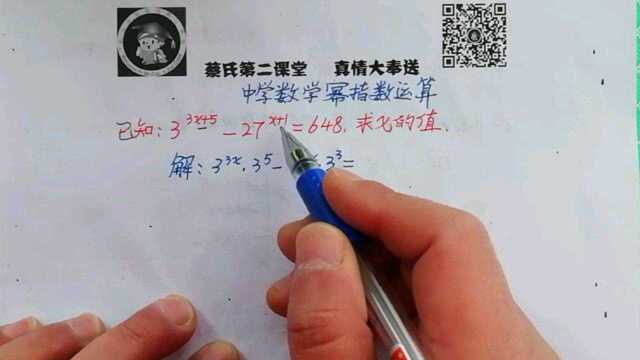 蔡氏第二课堂 真情大奉送
中学数学幂指数运算
已知:3^{3x+5}-27^{x+1}=648,求x的值.
解:3^{3x}·3^5- ·3^3=